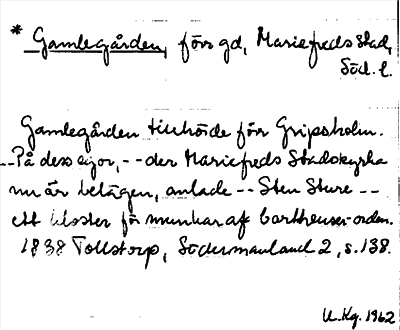 * Gamlegården, förs gd, Mariefreds stad,
Söd. l.
Gamlegården tillhörde förr Gripsholm.
--På dess egor, -- der Mariefreds Stadskyrka
nu är belägen, anlade -- Sten Sture --
ett kloster för munkar af Cartheuser-orden.
1838 Tollstorp, Södermanland 2, s. 138.
U. Kg. 1962